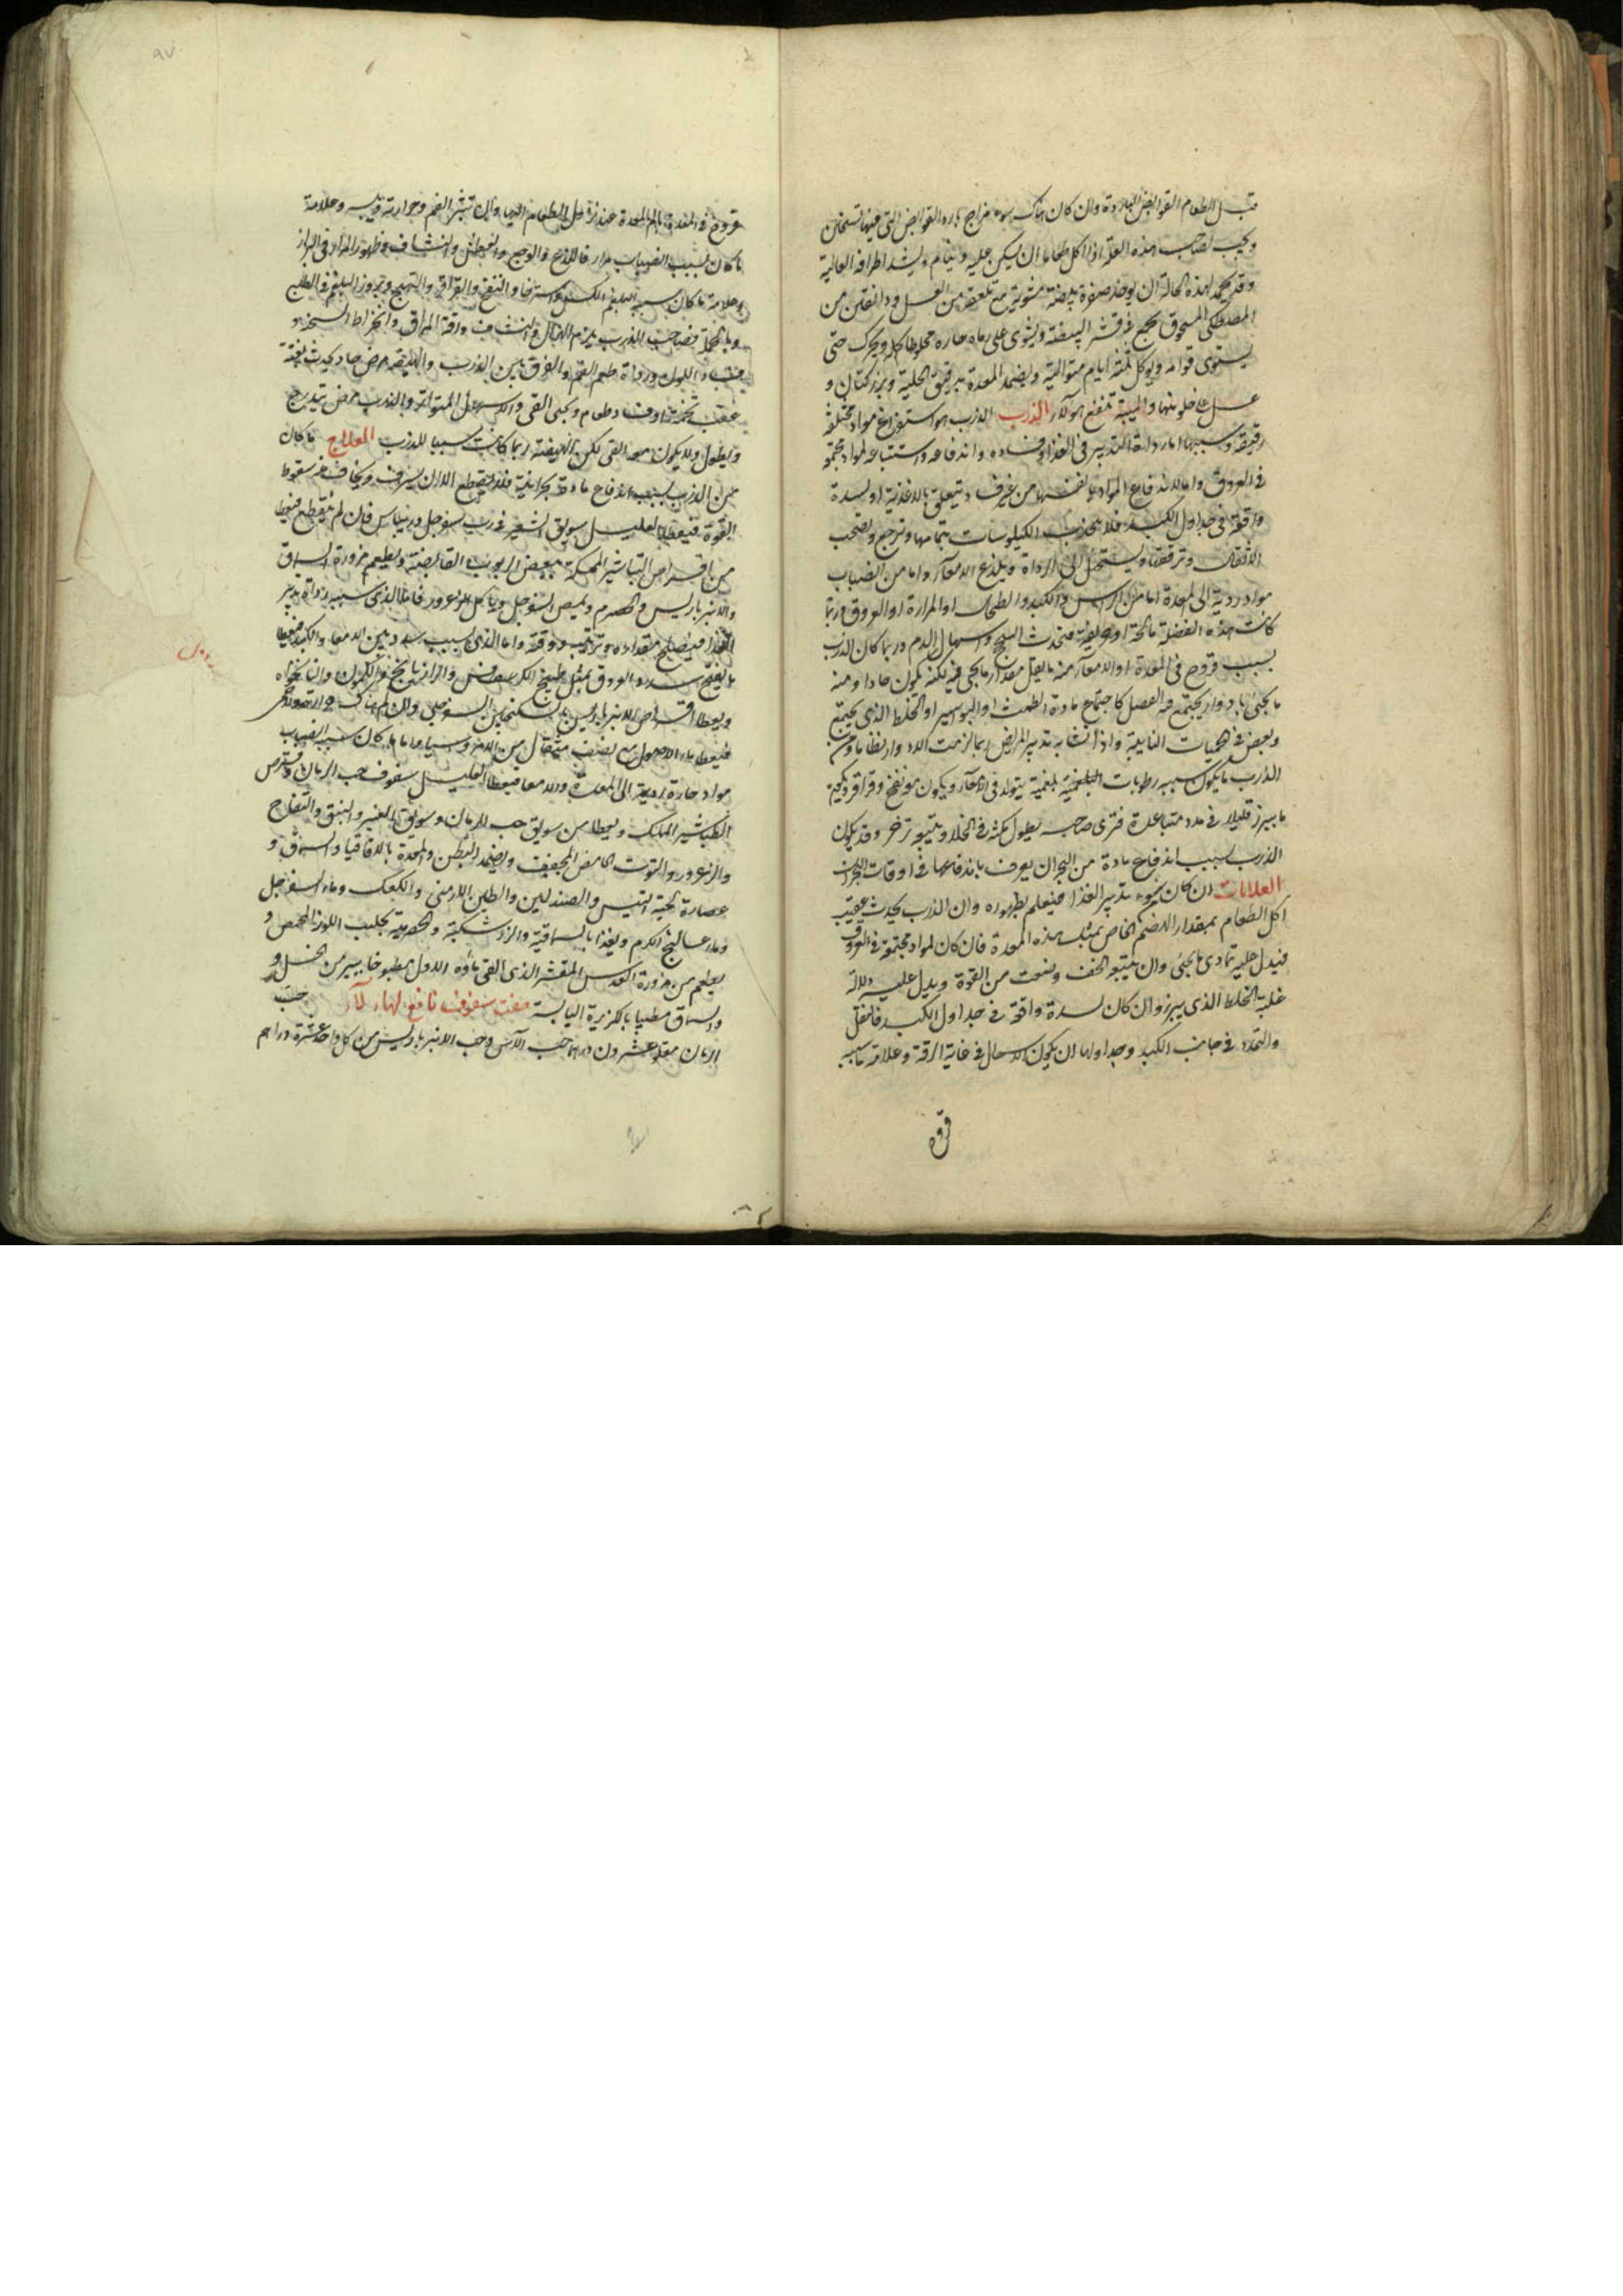 قبل الطعام القوابض الباردة وان كان هناك سوء مزاج بارد القوابض التى فيها تسخين
ويجب لصاحب هذه العلة اذا اكل طعاما ان يسكن عليه وينام ويشد اطرافه العالية
وقد يحمد لهذه الحالة ان يوخذ صفرة بيضة مشوية مع ملعقة من العسل ودانقين من
المصطكى المسحوق يجمع فى قشر البيضة ويشوى على رماد حار مخلوطا كله ويحرك حتى
يستوى قوامه ويوكل ثلثة ايام متوالية ويضمد المعدة بدقيق الحلبة وبزر كتان و
عسل والميبة تنفع هولاء الذرب الذرب هو استفراغ مواد مختلفة
رقيقة وسببها اما رداءة التدبير فى الغذا وفساده واندفاعه واستتباعه لمواد مجتمعة
فى العروق واما لاندفاع المواد بانفسها من غير فساد يتعلق بالاغذية او لسدة
واقعة فى جداول الكبد فلا تجذب الكيلوسات بتمامها وترجع وتصحب
الاثفال وترققها ويستحيل الى الرداة ويلذع الامعآء واما من انصباب
مواد ردية الى المعدة اما من الراس او الكبد او الطحال او المرارة او العروق وربما
كانت هذه الفضلة مالحة او بورقية فتحدث السحج واسهال الدم وربما كان الذرب
بسبب قروح فى المعدة او الامعآء منه ما يقل مقدار ما يجى فيه لكنه يكون حادا ومنه
ما يجئ بادوار يجتمع فيه الفضل كاجتماع مادة الطمث او البواسير او الخلط الذى يجتمع
ويعفن فى الحميات النايبة واذا تشابه تدبير المريض ربما لزمت الادوار نظاما ومن
الذرب ما يكون سببه رطوبات بلغمية يتولد فى الامعآء ويكون مع نفخ وقراقر ويكون
ما يبرز قليلا فى مدد متباعدة فترى صاحبه يطول مكثه فى الخلا ويتبعه تزحر وقد يكون
الذرب بسبب اندفاع مادة من البحران يعرف باندفاعها فى اوقات البحران
العلامات ان كان سوء تدبير الغذا فيعلم بظهوره وان الذرب يحدث عقيب
اكل الطعام بمقدار الهضم الخاص بمثل هذه المعدة فان كان لمواد مجتمعة فى العروق
فيدل عليه تمادى ما يجئى وان يتبعه الخف وصحت من القوة ويدل عليه دلالة
غلبة الخلط الذى يبرز وان كان لسدة واقعة فى جداول الكبد فالثقل
والتمدد فى جانب الكبد وجداولها ان يكون الاسهال فى غاية الرقة وعلامة ما سببه
قروح
قروح فى المعدة تالم المعدة عند نزول الطعام اليها وان تبثر الفم وحرارته ويبسه وعلامة
ما كان بسبب انصباب مرار فاللذع والوجع والعطش والنشاف وظهور المرار فى البراز
وعلامة ما كان سببه البلغم الكسل واسترخا والنفخ والقراقر والتهيج وبروز البلغم فى الطبع
وبالجملة فصاحب الذرب يلزمه الهزال والنشاف ورقة المراق وانخراط السحنة و
فساد اللون ورداة طعم الفم والفرق بين الذرب والهيضة ان الهيضة مرض حاد يحدث بغتة
عقيب تخمة وفساد طعام ويجى القى والاسهال المتواتر والذرب مرض يتدرج
ويطول ولا يكون معه القى لكن الهيضة ربما كانت سببا للذرب العلاج ما كان
من الذرب بسبب اندفاع مادة بحرانية فلا يقطع الا ان يسرف ويخاف من سقوط
القوة فيعطا العليل سويق الشعير فى رب سفرجل وريباس فان لم ينقطع فيعطا
من اقراص التباشير الممسكة ببعض الربوب القابضة ويطعم مزورة السماق
والانبرباريس والحصرم ويمص السفرجل وياكل الزعرور فاما الذى سببه رداة تدبير
الغذا فيصلح مقداره وترتيبه ووقته واما الذى بسبب سدد بين الامعا والكبد فيعطا
ما يفتح سدد العروق بمثل طبيخ الكرفس والرازيانج والكمون والنانخواه
ويعطا اقراص الانبرباريس بالسكنجبين السفرجلى وان لم يكن هناك حرارة
فيعطا ماء الاصول مع نصف مثقال من الامروسيا واما ما كان سببه انصباب
مواد حارة ردية الى المعدة والامعا فيعطا العليل سفوف حب الرمان وقرص
الطباشير الممسك ويعطا من سويق حب الرمان وسويق الغبير والنبق والتفاح
والزعرور والتوث الحامض المجفف ويضمد البطن والمعدة بالاقاقيا والسماق و
عصارة لحية التيس والصندلين والطين الارمنى والكعك وماء السفرجل
وماء عساليج الكرم ويغذا بالسماقية والزرشكية والحصرمية بحليب اللوز المحمص و
يطعم من مزورة العدس المقشر الذى القى ماؤه الاول مطبوخا بيسير من الخل و
والسماق مطيبا بالكزبرة اليابسة صفت سفوف نافع لهاولآء حب
الرمان مقلو عشرون درهما حب الآس وحب الانبرباريس من كل واحد عشرة دراهم